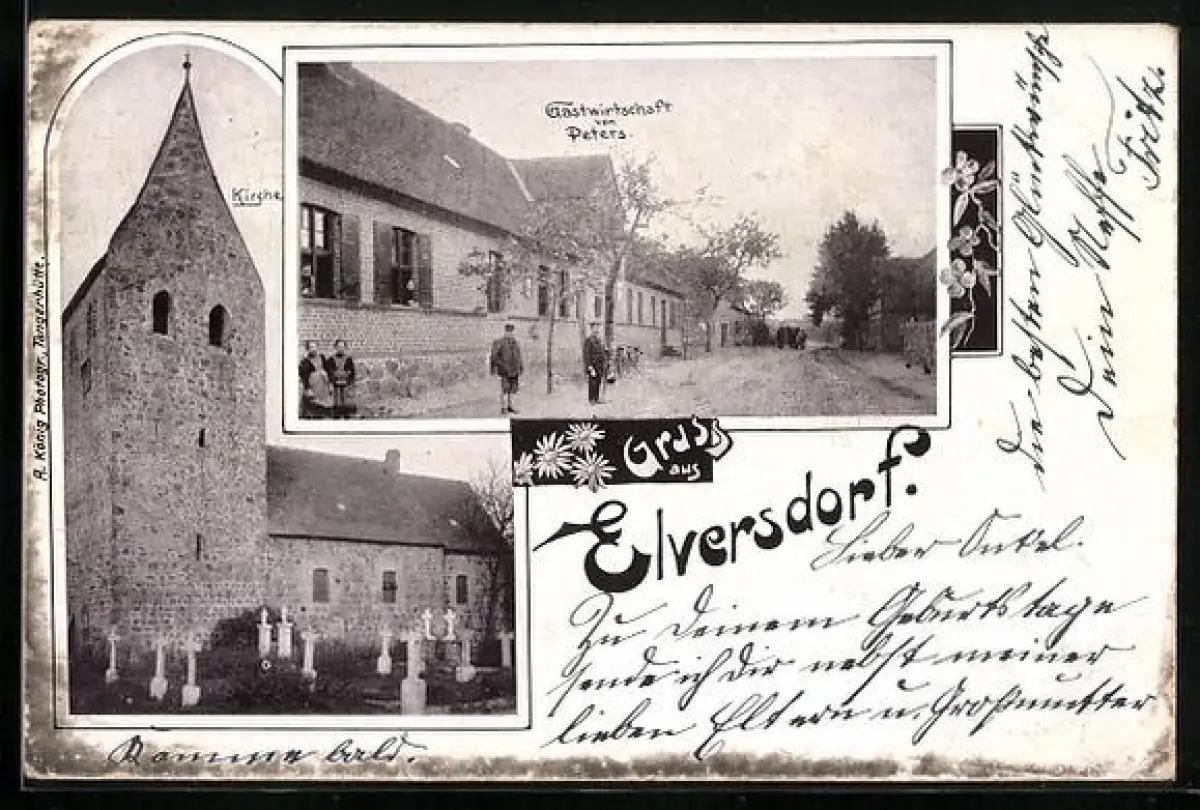 Kirche
Gastwirtschaft
von
Peters.
R. König Photogr., Tangerhütte.
Gruss
aus
Elversdorf.
Lieber Onkel.
Zu Deinem Geburtstage
sende ich Dir nebst meiner
lieben Eltern u. Großmutter
die besten Glückwünsche
Dein Neffe
Fritz.
Komme bald.